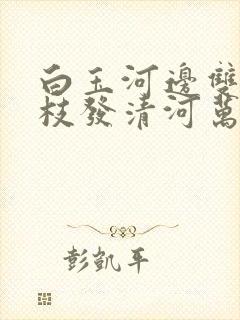 白玉河邊雙
枝發清河萬
彭凱平